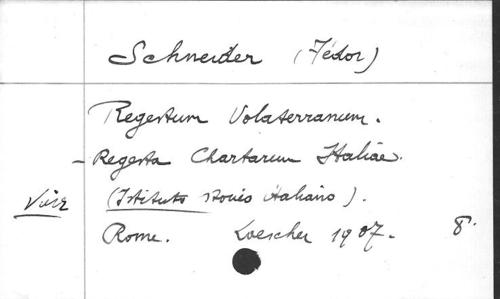 Schneider (Fédor)
Regestum Volaterranum.
- Regesta Chartarum Italiae.
Voir (Istituto storico italiano).
Rome. Loescher 1907. 8°.